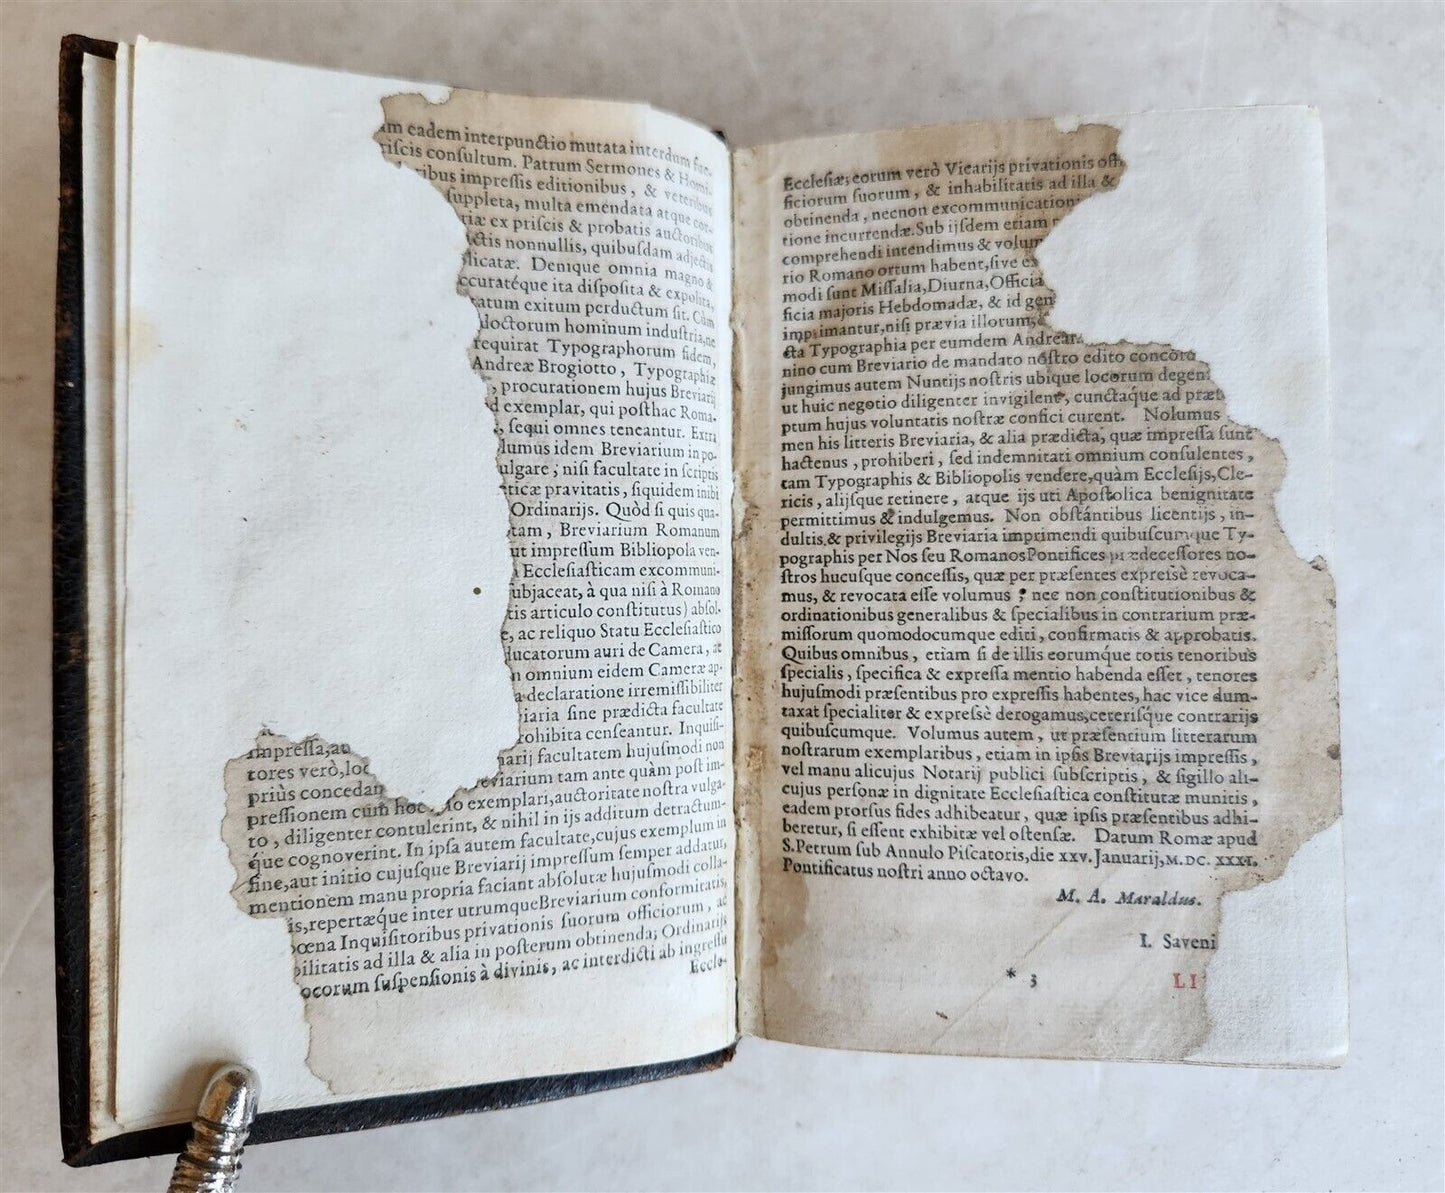 am eadem interpunctio mutata interdum fue-
riſcis conſultum. Patrum Sermones & Homi-
ribus impreſſis editionibus, & veteribus
ſuppleta, multa emendata atque cor-
riæ ex priſcis & probatis auctoribus
ictis nonnullis, quibuſdam adjectis
plicatæ. Denique omnia magno &
ccuratéque ita diſpoſita & expolita,
tatum exitum perductum ſit. Cùm
doctorum hominum induſtria, ne
requirat Typographorum fidem,
Andreæ Brogiotto, Typographiæ
, procurationem hujus Breviarij
d exemplar, qui poſthac Roma-
, ſequi omnes teneantur. Extra
lumus idem Breviarium in po-
ulgare, niſi facultate in ſcriptis
ticæ pravitatis, ſiquidem inibi
Ordinarijs. Quòd ſi quis qua-
tam, Breviarium Romanum
ut impreſſum Bibliopola ven-
Eccleſiaſticam excommuni-
ubjaceat, à qua niſi à Romano
tis articulo conſtitutus) abſol-
e, ac reliquo Statu Eccleſiaſtico
ducatorum auri de Camera, ac
n omnium eidem Cameræ ap-
a declaratione irremiſſibiliter
iaria ſine prædicta facultate
rohibita cenſeantur. Inquiſi-
impreſſa, au narij facultatem hujuſmodi non
tores verò, loc eviarium tam ante quàm poſt im-
priùs concedan io exemplari, auctoritate noſtra vulga-
preſſionem cum hoc
to, diligenter contulerint, & nihil in ijs additum detractum-
que cognoverint. In ipſa autem facultate, cujus exemplum in
fine, aut initio cujuſque Breviarij impreſſum ſemper addatur,
mentionem manu propria faciant abſolutæ hujuſmodi colla-
is, repertæque inter utrumque Breviarium conformitatis,
pœna Inquiſitoribus privationis ſuorum officiorum, ac
bilitatis ad illa & alia in poſterum obtinenda; Ordinarijs
ocorum ſuſpenſionis à divinis, ac interdicti ab ingreſſu
Eccle-
Eccleſiæ; eorum verò Vicarijs privationis offi
ficiorum ſuorum, & inhabilitatis ad illa &
obtinenda, necnon excommunication
tione incurrendæ. Sub ijſdem etiam
comprehendi intendimus & volum
rio Romano ortum habent, ſive ex
modi ſunt Miſſalia, Diurna, Officia
ficia majoris Hebdomadæ, & id gen
imprimantur, niſi prævia illorum,
cta Typographia per eumdem Andream
nino cum Breviario de mandato noſtro edito concor
jungimus autem Nuntijs noſtris ubique locorum degen
ut huic negotio diligenter invigilent, cunctaque ad præ
ptum hujus voluntatis noſtræ confici curent. Nolumus
men his litteris Breviaria, & alia prædicta, quæ impreſſa ſunt
hactenus, prohiberi, ſed indemnitati omnium conſulentes,
tam Typographis & Bibliopolis vendere, quàm Eccleſijs, Cle-
ricis, alijſque retinere, atque ijs uti Apoſtolica benignitate
permittimus & indulgemus. Non obſtántibus licentijs, in-
dultis, & privilegijs Breviaria imprimendi quibuſcumque Ty-
pographis per Nos ſeu Romanos Pontifices prædeceſſores no-
ſtros hucuſque conceſſis, quæ per præſentes expreſsè revoca-
mus, & revocata eſſe volumus; nec non conſtitutionibus &
ordinationibus generalibus & ſpecialibus in contrarium præ-
miſſorum quomodocumque editi, confirmatis & approbatis.
Quibus omnibus, etiam ſi de illis eorumque totis tenoribus
ſpecialis, ſpecifica & expreſſa mentio habenda eſſet, tenores
hujuſmodi præſentibus pro expreſſis habentes, hac vice dum-
taxat ſpecialiter & expreſsè derogamus, ceteriſque contrarijs
quibuſcumque. Volumus autem, ut præſentium litterarum
noſtrarum exemplaribus, etiam in ipſis Breviarijs impreſſis,
vel manu alicujus Notarij publici ſubſcriptis, & ſigillo ali-
cujus perſonæ in dignitate Eccleſiaſtica conſtitutæ munitis,
eadem prorſus fides adhibeatur, quæ ipſis præſentibus adhi-
beretur, ſi eſſent exhibitæ vel oſtenſæ. Datum Romæ apud
S. Petrum ſub Annulo Piſcatoris, die xxv. Januarij, M.DC. XXXI.
Pontificatus noſtri anno octavo.
M. A. Maraldus.
I. Saveni
* 3 LI